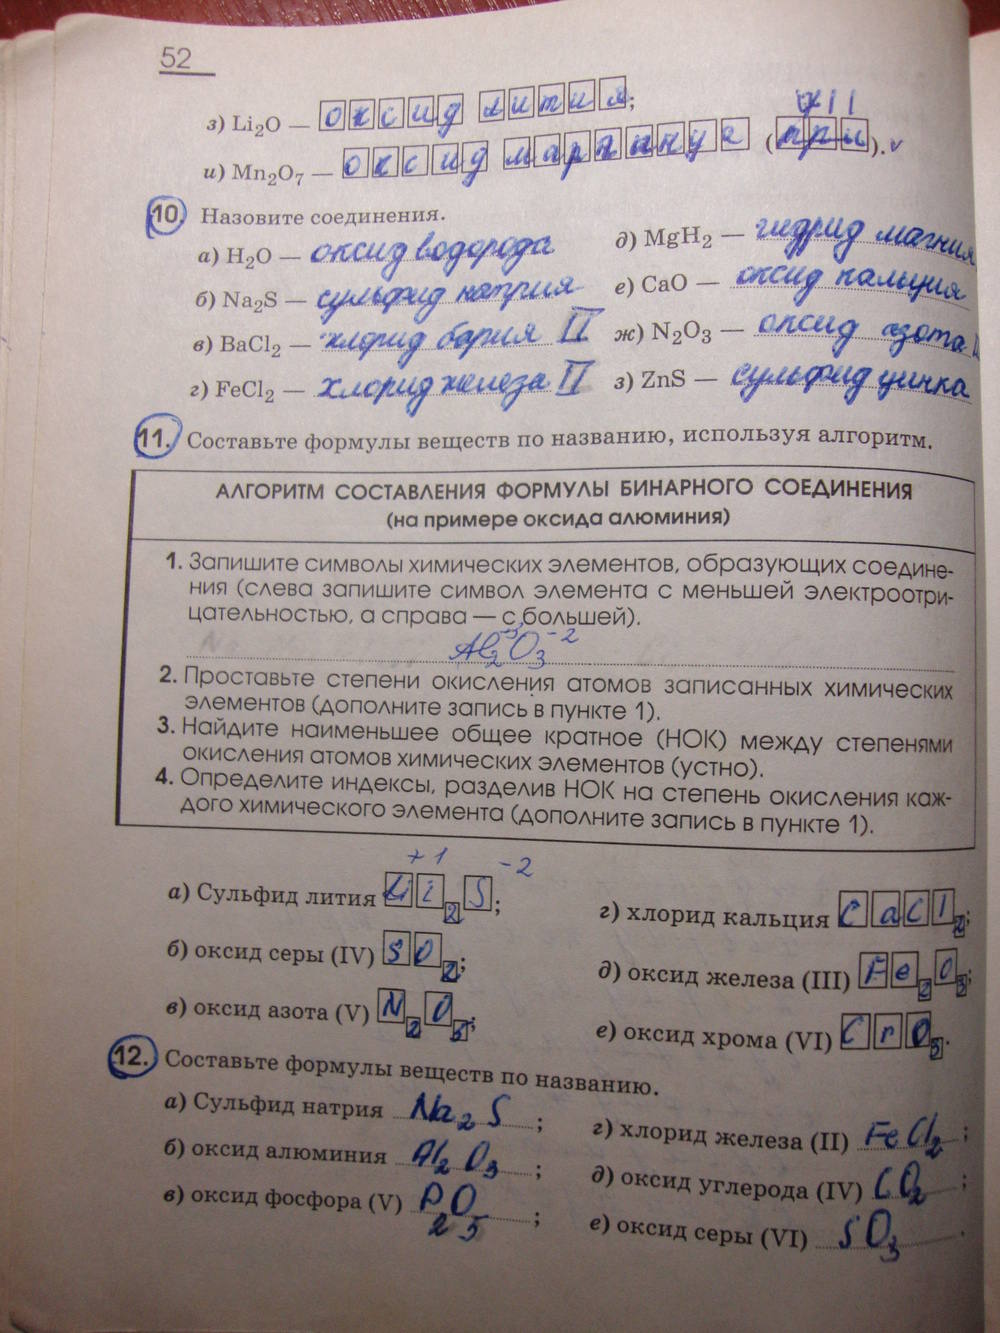 52
з) Li₂O — оксид лития;
VII
и) Mn₂O₇ — оксид марганца (при).
10. Назовите соединения.
а) H₂O — оксид водорода
д) MgH₂ — гидрид магния
б) Na₂S — сульфид натрия
е) CaO — оксид кальция
в) BaCl₂ — хлорид бария II
ж) N₂O₃ — оксид азота
г) FeCl₂ — хлорид железа II
з) ZnS — сульфид цинка
11. Составьте формулы веществ по названию, используя алгоритм.
АЛГОРИТМ СОСТАВЛЕНИЯ ФОРМУЛЫ БИНАРНОГО СОЕДИНЕНИЯ
(на примере оксида алюминия)
1. Запишите символы химических элементов, образующих соедине-
ния (слева запишите символ элемента с меньшей электроотри-
цательностью, а справа — с большей).
Al₂⁺³O₃⁻²
2. Проставьте степени окисления атомов записанных химических
элементов (дополните запись в пункте 1).
3. Найдите наименьшее общее кратное (НОК) между степенями
окисления атомов химических элементов (устно).
4. Определите индексы, разделив НОК на степень окисления каж-
дого химического элемента (дополните запись в пункте 1).
+1 -2
а) Сульфид лития Li₂S;
г) хлорид кальция CaCl₂;
б) оксид серы (IV) SO₂;
д) оксид железа (III) Fe₂O₃;
в) оксид азота (V) N₂O₅;
е) оксид хрома (VI) CrO₃.
12. Составьте формулы веществ по названию.
а) Сульфид натрия Na₂S;
г) хлорид железа (II) FeCl₂;
б) оксид алюминия Al₂O₃;
д) оксид углерода (IV) CO₂;
в) оксид фосфора (V) P₂O₅;
е) оксид серы (VI) SO₃.